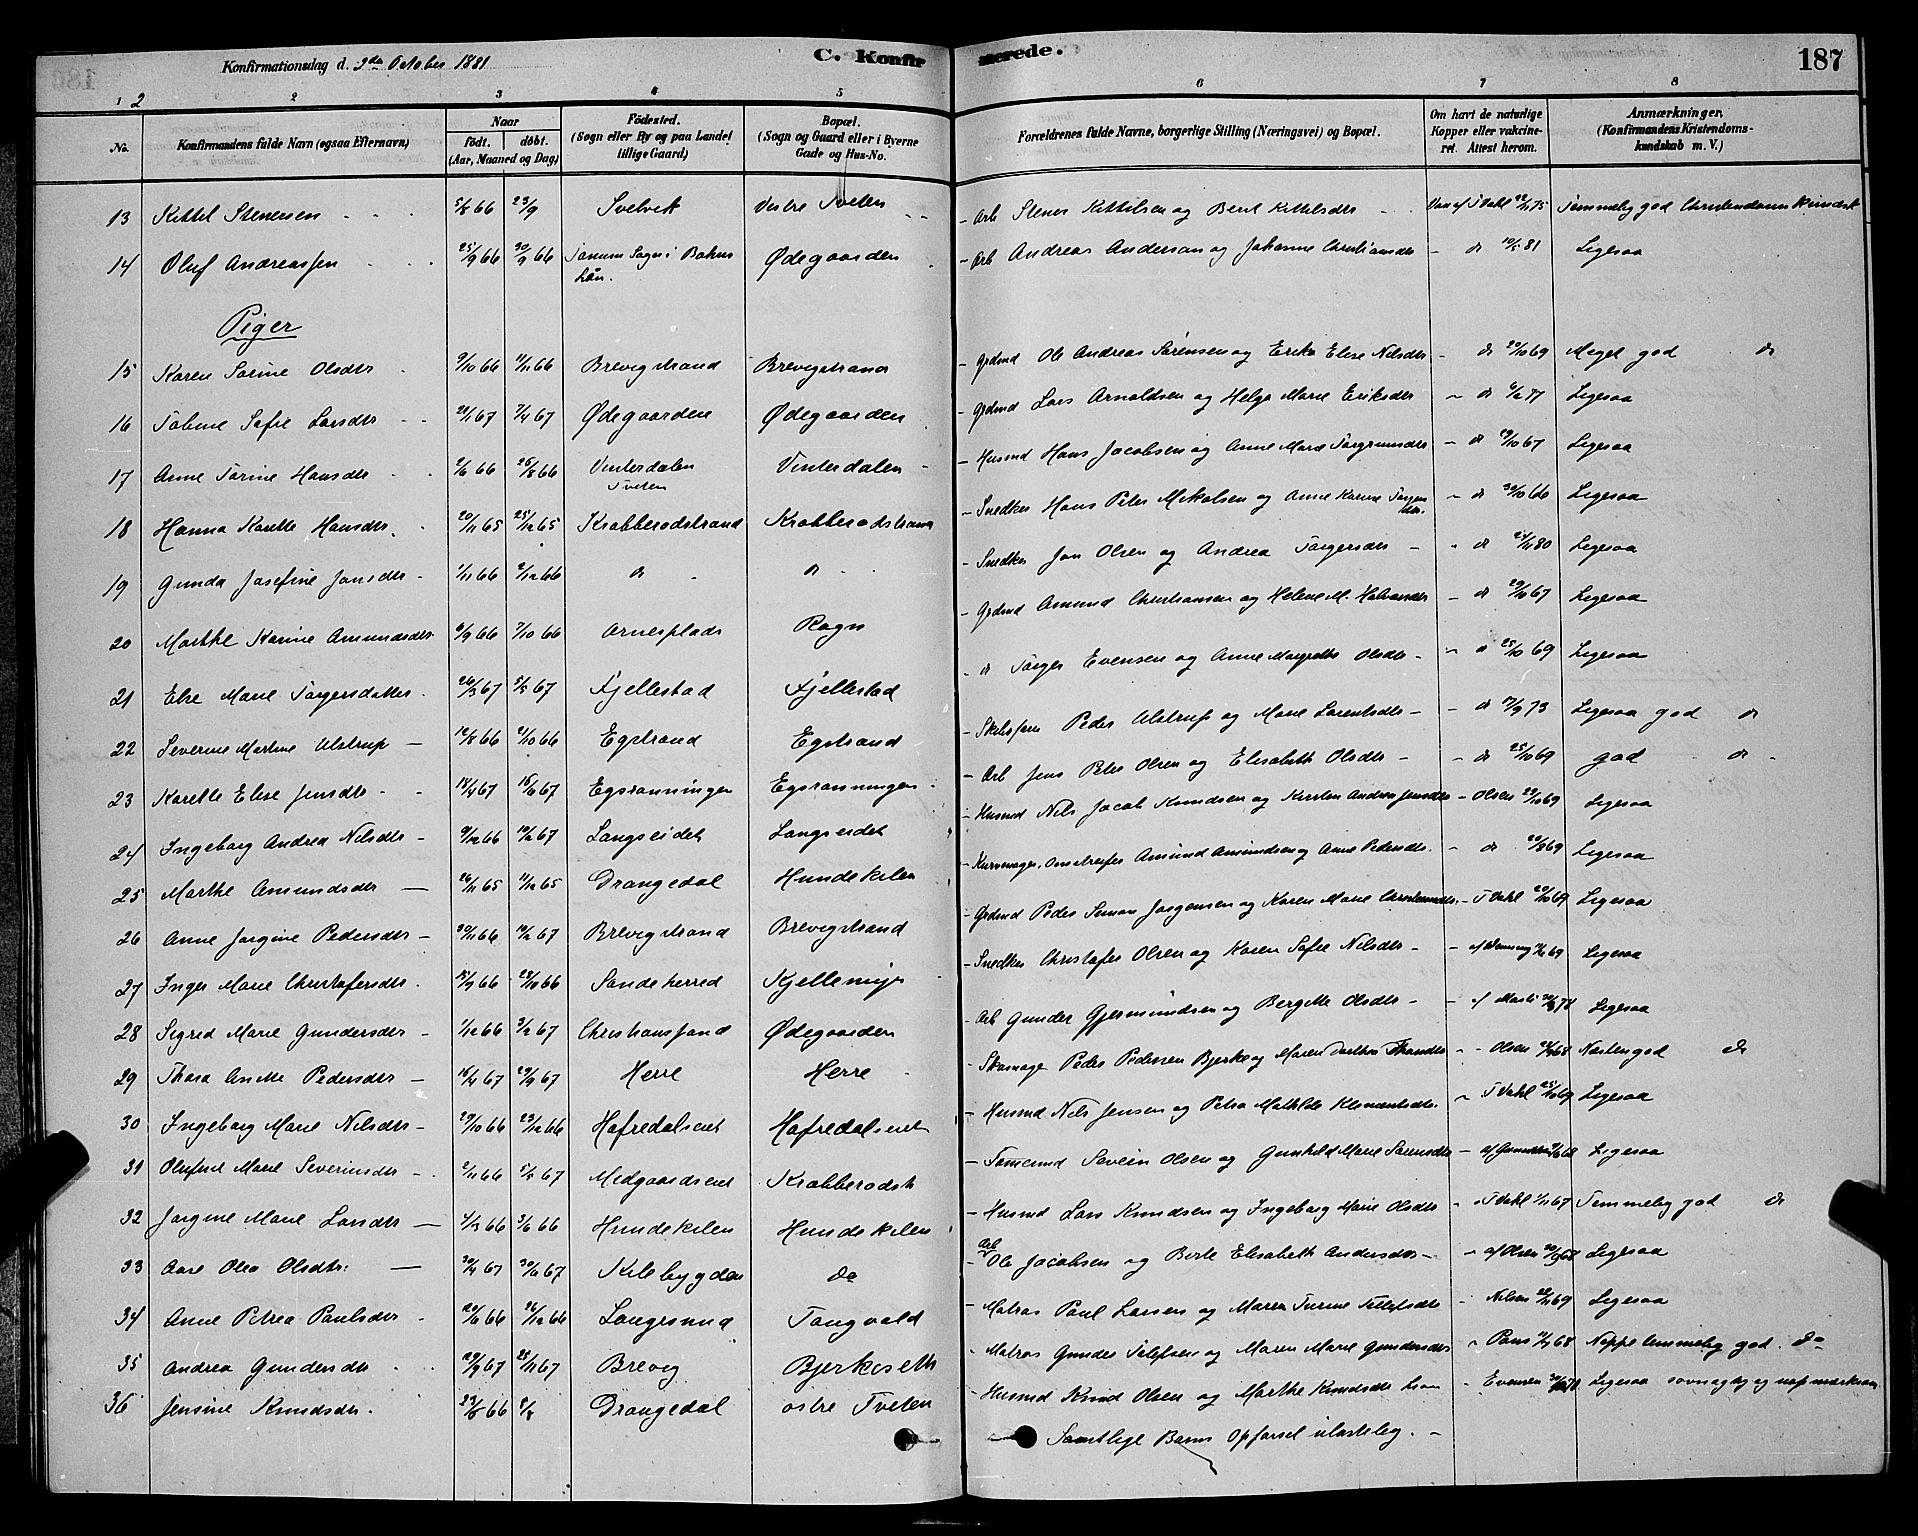 Konfirmationsdag d. 2den October 1881
C. Konfirmerede.
187
1 2 3 4 5 6 7 8
2
No.
Konfirmandens fulde Navn (ogsaa Efternavn)
Naar
født. døbt.
(Aar, Maaned og Dag)
Fødested.
(Sogn eller By og paa Landet tillige Gaard)
Bopæl.
(Sogn og Gaard eller i Byerne Gade og Hus-No.
Forældrenes fulde Navne, borgerlige Stilling (Næringsvei) og Bopæl.
Om havt de naturlige Kopper eller vakcineret. Attest herom.
Anmærkninger.
(Konfirmandens Kristendomskundskab m. V.)
13 Kittil Stenersen 5/8 66 23/9 Svelvik Vestre Tveten - Arb Stener Kittilsen og Berit Kittilsdtr Vac af T Dahl 75 Temmelig god Christendomskundsk
14 Oluf Andreassen 25/9 66 30/9 66 Tanum Sogn i Bohus Lån. Ødegaarden - Arb Andreas Andersan og Johanne Christiansdtr - do 10/5 81 Ligesaa
Piger
15 Karen Sorine Olsdtr 9/10 66 11/11 66 Brevigstrand Brevigstrand - Grdmd Ole Andreas Sørensen og Erika Elise Nilsdtr - do 29/10 69 Meget god do
16 Tobine Sofie Larsdtr 29/1 67 7/4 67 Ødegaarden Ødegaarden - Grdmd Lars Arnoldsen og Helge Marie Eriksdtr - do 6/6 77 Ligesaa
17 Anne Torine Hansdtr 2/6 66 26/8 66 Vinterdalen Tveten Vinterdalen - Husmd Hans Jacobsen og Anne Marie Torgrimsdtr - do 19/10 67 Ligesaa
18 Hanna Karette Hansdtr. 20/11 65 25/12 65 Krabberødstrand Krabberødstrand - Snedker Hans Peter Mikalsen og Anne Karine Torgersdtr. - do 30/10 66 Ligesaa
19 Gunda Josefine Jansdtr 1/11 66 2/12 66 do do - Snedker Jan Olsen og Andrea Torgersdtr - do 80 Ligesaa
20 Marthe Karine Amundsdtr 6/9 66 7/10 66 Arnesplads Rogn - Grdmd Amund Christiansen og Helene M. Halvorsdtr - do 29/10 67 Ligesaa
21 Else Marie Torgersdatter 26/3 67 5/5 67 Fjellestad Fjellestad - do Torger Evensen og Anne Margrethe Olsdtr - do 25/10 69 Ligesaa
22 Severine Martine Ulstrup 12/8 66 21/10 66 Egstrand Egstrand - Skibsfører Peder Ulstrup og Marie Larentsdtr - do 73 Ligesaa god do
23 Karette Elise Jensdtr 14/4 67 16/6 67 Egsrønningen Egsrønningen - Arb Jens Peter Olsen og Elisabeth Olsdtr - do 25/10 69 god do
24 Ingeborg Andrea Nilsdtr 9/12 66 10/2 67 Langseidet Langseidet - Husmd Nils Jacob Knudsen og Kirsten Andrea Jensdtr - Olsen 29/10 69 Ligesaa
25 Marthe Amundsdtr 26/11 65 11/12 65 Drangedal Hundekilen - Kurvmager, Omstreifer Amund Amundsen og Anne Pedersdtr. - do 29/10 69 Ligesaa
26 Anne Jørgine Pedersdtr 30/11 66 10/2 67 Brevigstrand Brevigstrand - Grdmd Peder Simon Jørgensen og Karen Marie Christensdtr. - T Dahl 29/10 69 Ligesaa
27 Inger Marie Christofersdtr. 15/9 66 28/10 66 Sandeherred Kjellemyr - Snedker Christofer Olsen og Karen Sofie Nilsdtr - 69 Ligesaa
28 Sigred Marie Gundersdtr 1/12 66 3/2 67 Christiansand Ødegaarden - Arb Gunder Gjermundsen og Bergitte Olsdtr - Ligesaa
29 Thora Anette Pedersdtr 15/4 67 29/9 67 Herre Herre - Skomager Peder Pedersen Bjerke og Maren Dorthea - Olsen 68 Næsten god do
30 Ingeborg Marie Nilsdtr 29/10 66 23/12 66 Hafredalseiet Hafredalseiet - Husmd Nils Jensen og Petra Mathilde Klemmetsdtr. - T Dahl 25/10 69 Ligesaa
31 Olufine Marie Severinsdtr 2/11 66 5/5 67 Midgaardseiet Krabberødst - Tømmermd Severin Olsen og Gunhild Marie Sørensdtr - 68 Ligesaa
32 Jørgine Marie Larsdtr 4/3 66 3/6 66 Hundekilen Hundekilen - Husmd Lars Knudsen og Ingeborg Marie Olsdtr - T Dahl 67 Temmelig god do
33 Aase Olea Olsdtr: 30/4 67 30/6 67 Kilebygden do - Arb Ole Jacobsen og Berte Elisabeth Andersdtr - af Olsen 68 Ligesaa
34 Anne Petrea Paulsdtr 20/6 66 26/12 66 Langesund Tangvald - Matros Paul Larsen og Maren Turine Tellefsdtr - Nilsen 69 Ligesaa
35 Andrea Gundersdtr 67 67 Brevig Bjerkeseth - Matros Gunder Tolefsen og Maren Marie Gundersdtr - Paus 68 Neppe temmelig god. do
36 Jensine Knudsdtr. 66 Drangedal østre Tveten - Husmd Knud Olsen og Marthe Knudsdtr - Evensen Ligesaa
Samtlige Børns Opførsel ulastelig.